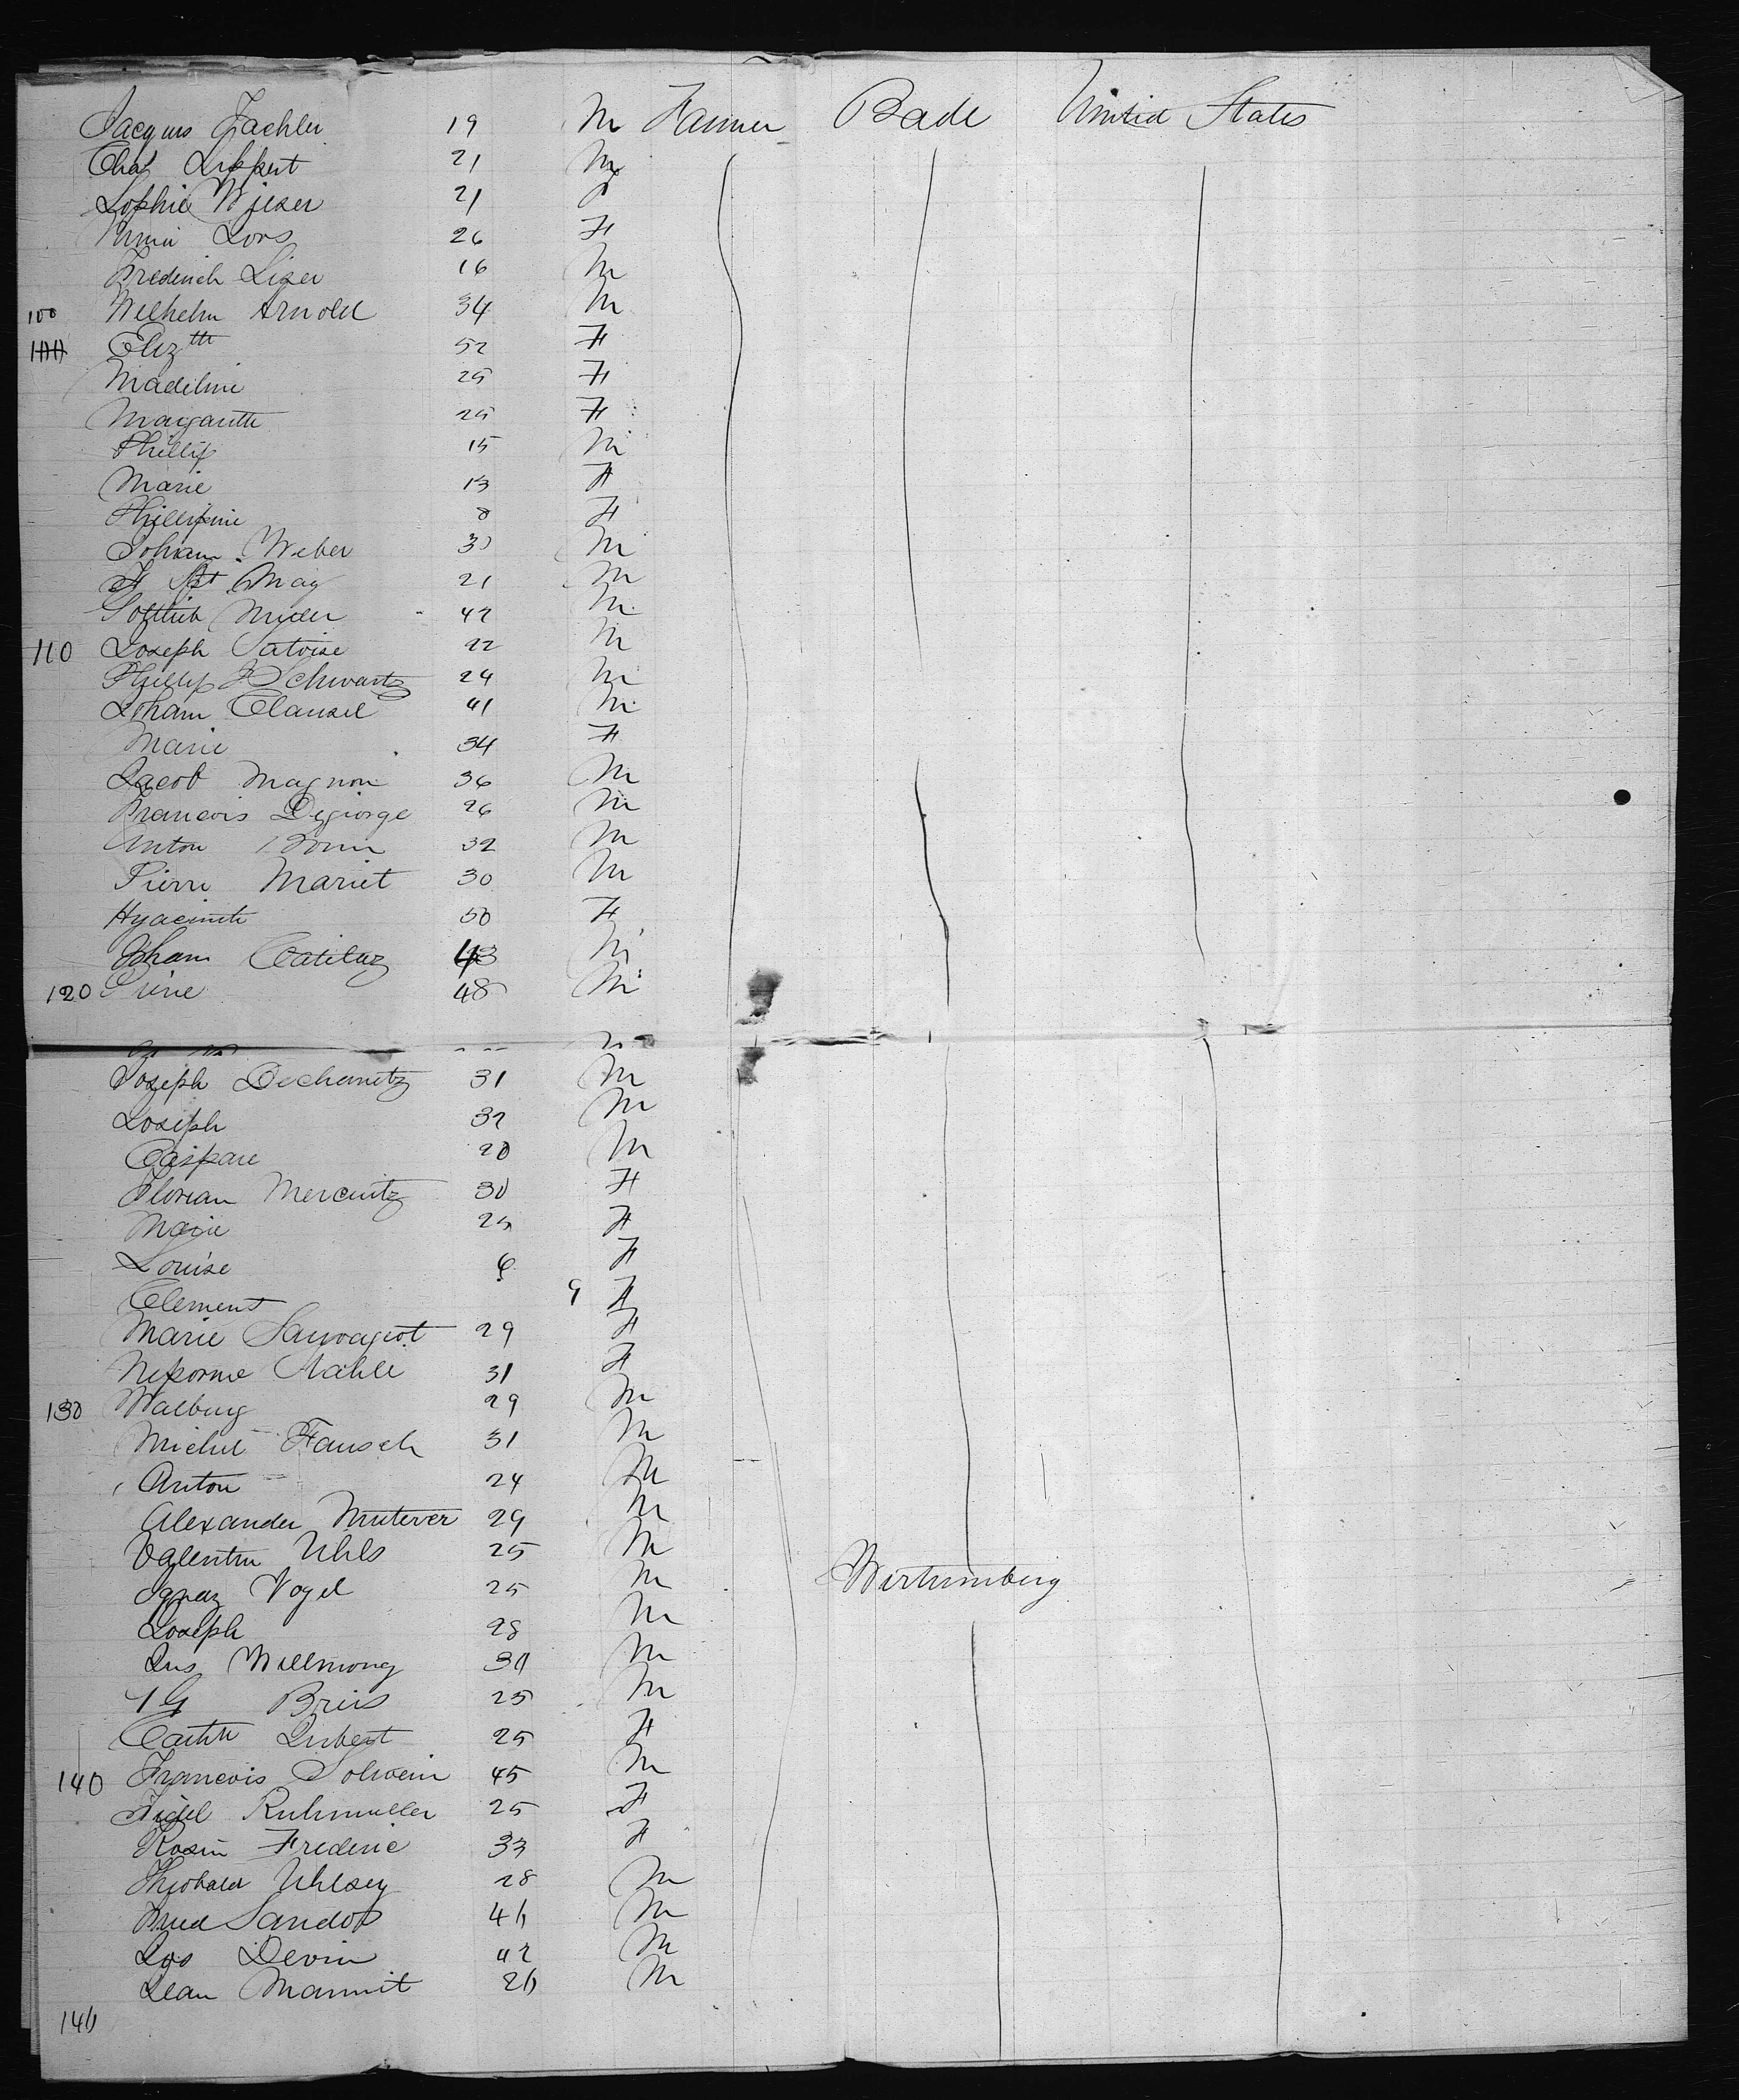 Jacques Zachler 19 M Farmer Bade United States
Chas Lippert 21 M
Sophie Wieser 21 F
Anna Lors 26 F
Frederich Lizer 16 M
100 Wilhelm Arnold 34 M
Elizth 52 F
Madeline 25 F
Margarette 25 F
Phillip 15 M
Marie 13 F
Phillipine 8 F
Johann Weber 30 M
May 21 M
Gottlieb Muller 42 M
110 Joseph Satoise 22 M
Phillip Schwartz 24 M
Johann Clausel 41 M
Marie 34 F
Jacob Magnon 36 M
Francois Degiorge 26 M
Anton 32 M
Pierre Mariet 30 M
Hyacinte 50 F
Johann Catiluz 43 M
120 48 M
Joseph Dechanitz 31 M
Joseph 32 M
Caspare 20 M
Florian Mercuitz 30 F
Marie 25 F
Louise 6 F
Clement 9 F
Marie Sauvageot 29 F
Nepome Stahle 31 F
130 Walburg 29 M
Michel Fausch 31 M
Anton 24 M
Alexander Muterer 29 M
Valentin Uhls 25 M
Ignaz Vogel 25 M Wirtumberg
Joseph 28 M
Jus Willmong 30 M
Bruis 25 M
Cath Jubert 25 F
140 Francois Solwein 45 M
Ruhmuller 25 F
Rosin Frederic 33 F
Theobald Uhlsey 28 M
Fred Sandos 46 M
Jos Devin 42 M
Jean Mannit 26 M
146